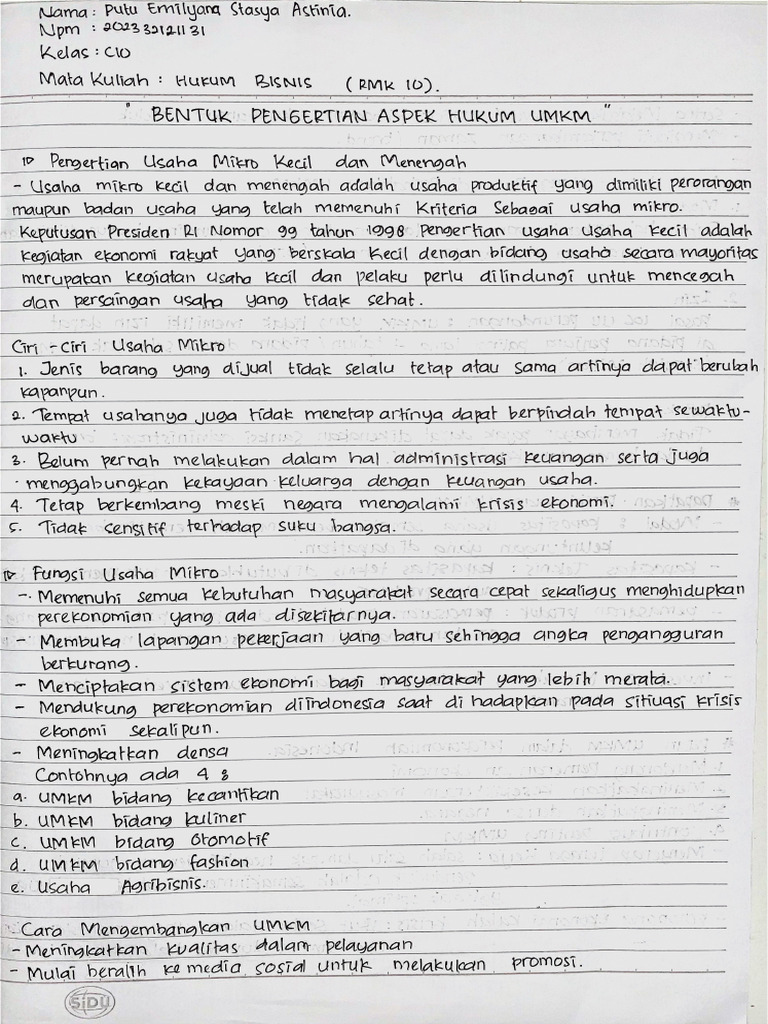 Nama : Putu Emilyana Stasya Astinia.
Npm : 202332121131
Kelas : C10
Mata Kuliah : HUKUM BISNIS (RMK 10).
" BENTUK PENGERTIAN ASPEK HUKUM UMKM "
Pengertian Usaha Mikro Kecil dan Menengah
- Usaha mikro kecil dan menengah adalah usaha produktif yang dimiliki perorangan
maupun badan usaha yang telah memenuhi Kriteria Sebagai usaha mikro.
Keputusan Presiden RI Nomor 99 tahun 1998 Pengertian usaha usaha kecil adalah
kegiatan ekonomi rakyat yang berskala Kecil dengan bidang usaha secara mayoritas
merupakan kegiatan usaha kecil dan pelaku perlu dilindungi untuk mencegah
dan persaingan usaha yang tidak sehat.
Ciri - Ciri Usaha Mikro
1. Jenis barang yang dijual tidak selalu tetap atau sama artinya dapat berubah
kapanpun.
2. Tempat usahanya juga tidak menetap artinya dapat berpindah tempat sewaktu-
waktu
3. Belum pernah melakukan dalam hal administrasi keuangan serta juga
menggabungkan kekayaan keluarga dengan keuangan usaha.
4. Tetap berkembang meski negara mengalami krisis ekonomi.
5. Tidak sensitif terhadap suku bangsa.
Fungsi Usaha Mikro
- Memenuhi semua kebutuhan masyarakat secara cepat sekaligus menghidupkan
perekonomian yang ada disekitarnya.
- Membuka lapangan pekerjaan yang baru sehingga angka pengangguran
berkurang.
- Menciptakan sistem ekonomi bagi masyarakat yang lebih merata.
- Mendukung perekonomian diindonesia saat di hadapkan pada sitiuasi krisis
ekonomi sekalipun.
- Meningkatkan densa
Contohnya ada 4 :
a. UMKM bidang kecantikan
b. UMKM bidang kuliner
c. UMKM bidang otomotif
d. UMKM bidang fashion
e. Usaha Agribisnis.
Cara Mengembangkan UMKM
- Meningkatkan kualitas dalam pelayanan
- Mulai beralih ke media sosial untuk melakukan promosi.
SiDU